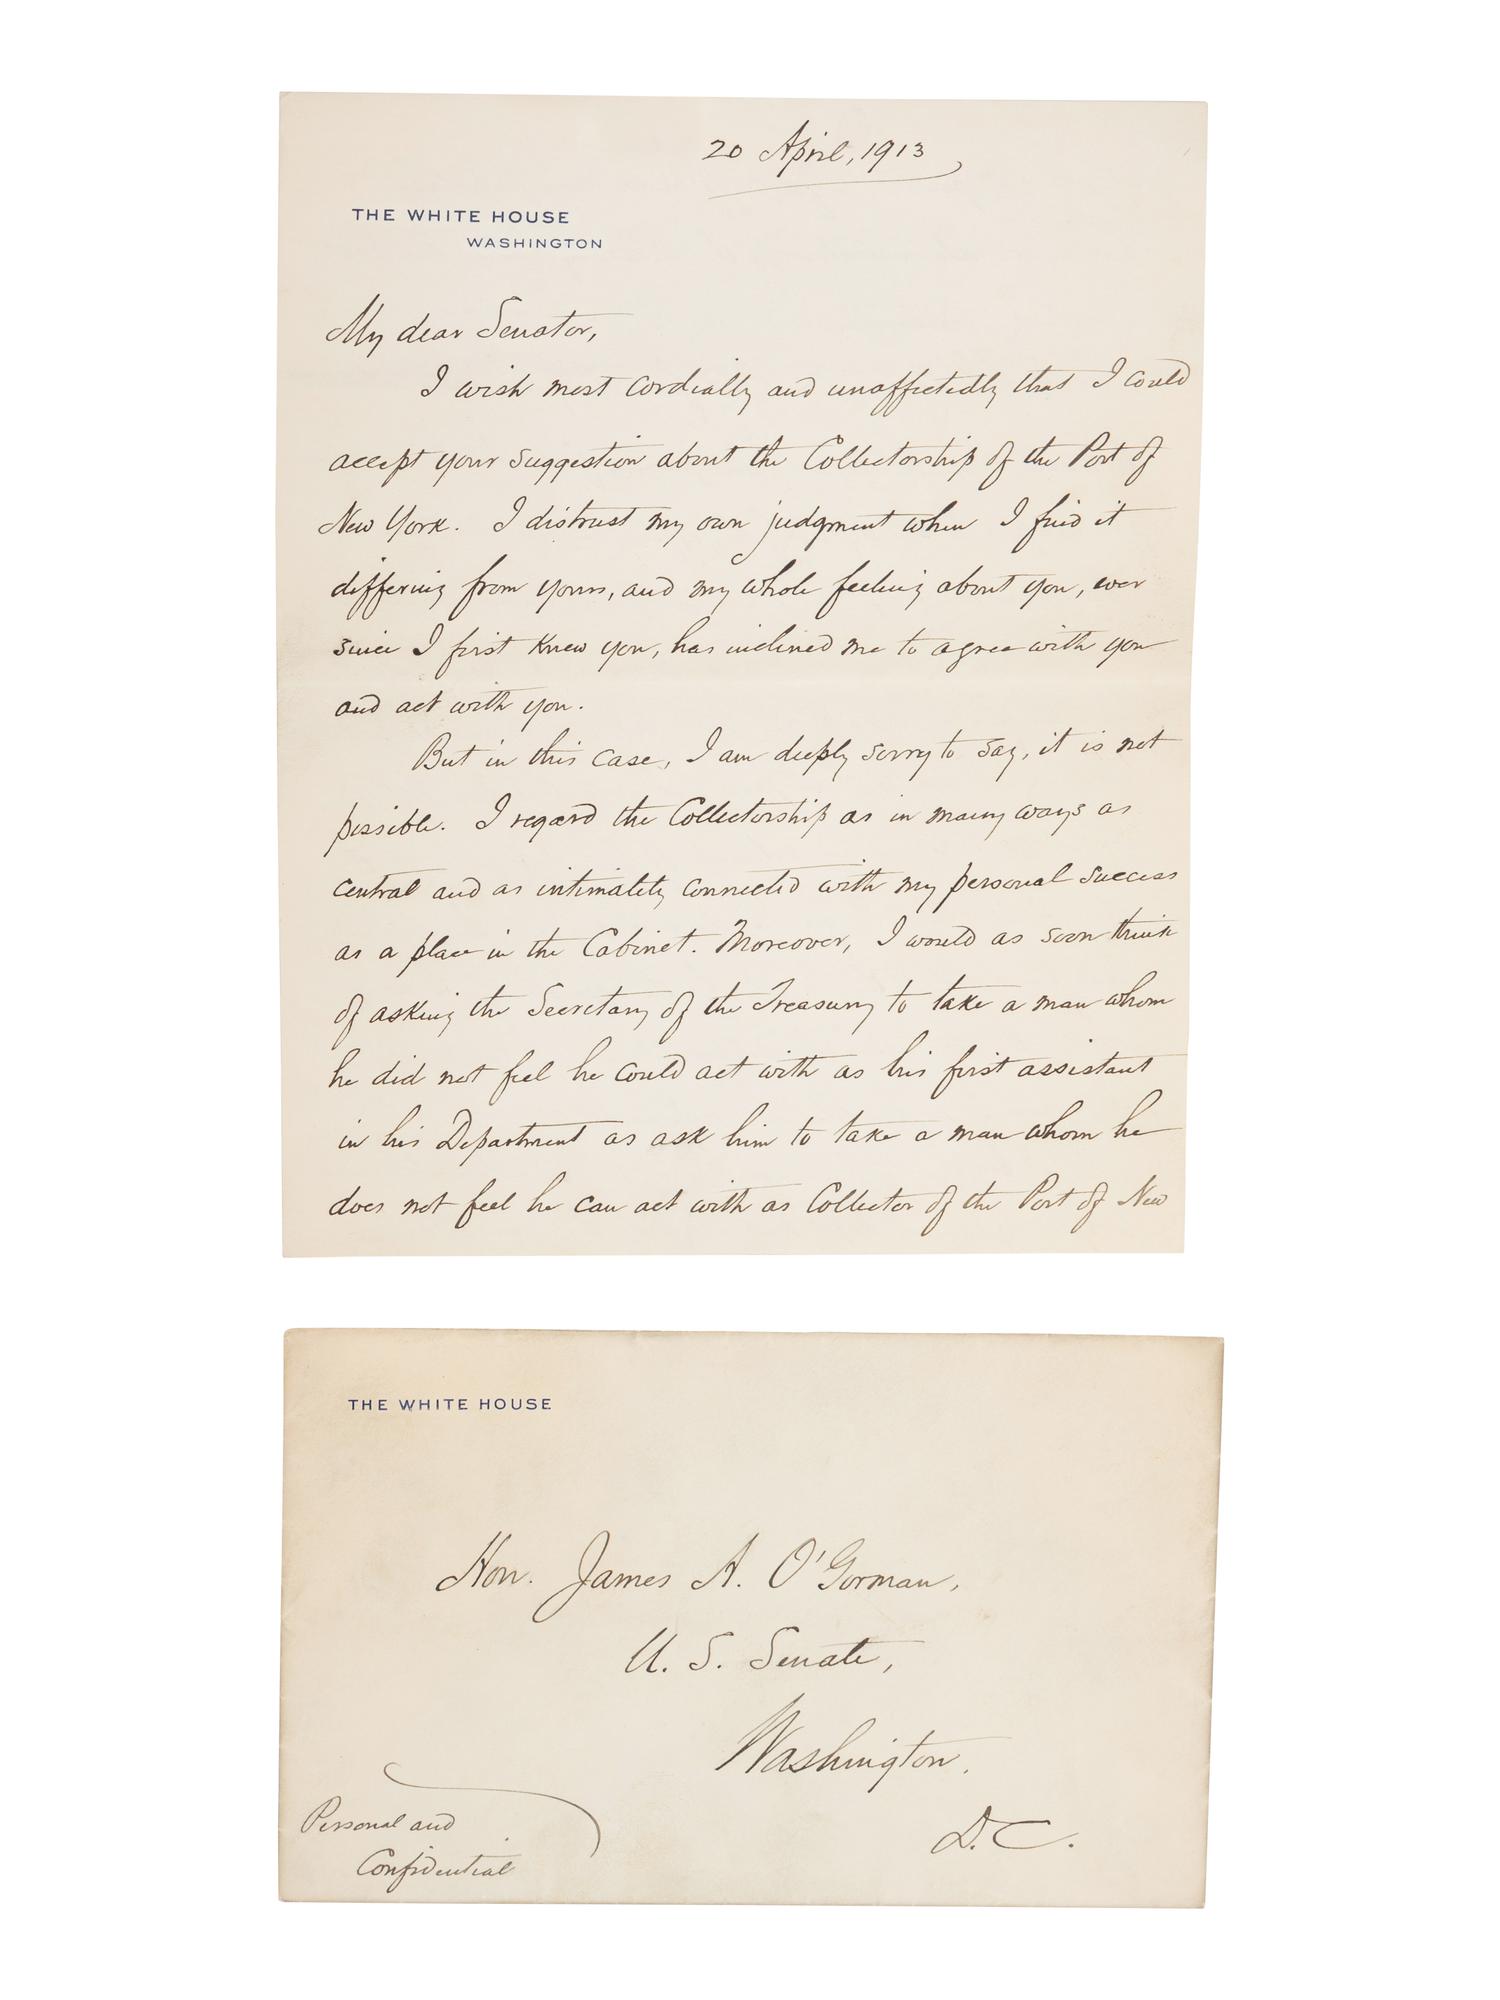 20 April, 1913
THE WHITE HOUSE
WASHINGTON
My dear Senator,
I wish most cordially and unaffectedly that I could
accept your suggestion about the Collectorship of the Port of
New York. I distrust my own judgment when I find it
differing from yours, and my whole feeling about you, ever
since I first knew you, has inclined me to agree with you
and act with you.
But in this case, I am deeply sorry to say, it is not
possible. I regard the Collectorship as in many ways as
central and as intimately connected with my personal success
as a place in the Cabinet. Moreover, I would as soon think
of asking the Secretary of the Treasury to take a man whom
he did not feel he could act with as his first assistant
in his Department as ask him to take a man whom he
does not feel he can act with as Collector of the Port of New
THE WHITE HOUSE
Hon. James A. O'Gorman,
U. S. Senate,
Washington.
D.C.
Personal and
Confidential